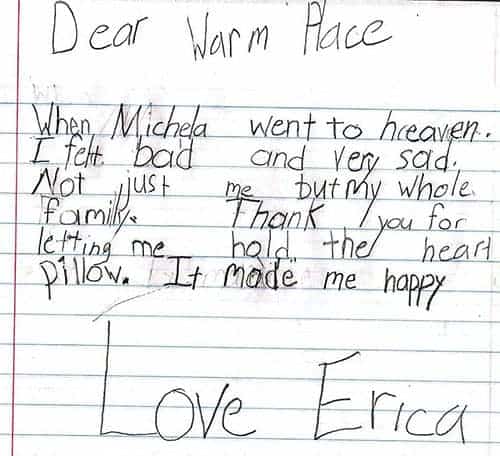 Dear Warm Place
When Michela went to hreaven.
I felt bad and very sad.
Not just me but my whole
family. Thank you for
letting me hold the heart
pillow. It made me happy
Love Erica